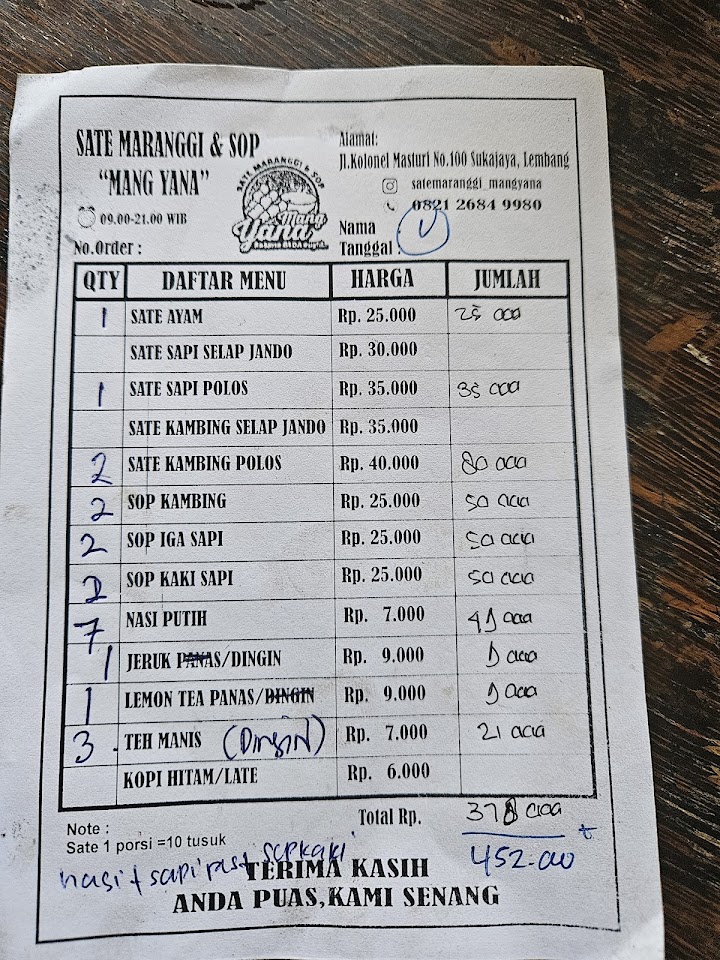 SATE MARANGGI & SOP
"MANG YANA"
09.00-21.00 WIB
No.Order :
SATE MARANGGI & SOP
Mang
Yana
Alamat:
Jl.Kolonel Masturi No.100 Sukajaya, Lembang
satemaranggi_mangyana
0821 2684 9980
Nama :
Tanggal :
QTY DAFTAR MENU HARGA JUMLAH
1 SATE AYAM Rp. 25.000 25 000
SATE SAPI SELAP JANDO Rp. 30.000
1 SATE SAPI POLOS Rp. 35.000 35 000
SATE KAMBING SELAP JANDO Rp. 35.000
2 SATE KAMBING POLOS Rp. 40.000 80 000
2 SOP KAMBING Rp. 25.000 50 000
2 SOP IGA SAPI Rp. 25.000 50 000
2 SOP KAKI SAPI Rp. 25.000 50 000
7 NASI PUTIH Rp. 7.000 49 000
1 JERUK PANAS/DINGIN Rp. 9.000 9 000
1 LEMON TEA PANAS/DINGIN Rp. 9.000 9 000
3 TEH MANIS (Dingin) Rp. 7.000 21 000
KOPI HITAM/LATE Rp. 6.000
Total Rp. 378 000 +
452.00
Note :
Sate 1 porsi =10 tusuk
nasi + sapi sopkaki
TERIMA KASIH
ANDA PUAS,KAMI SENANG